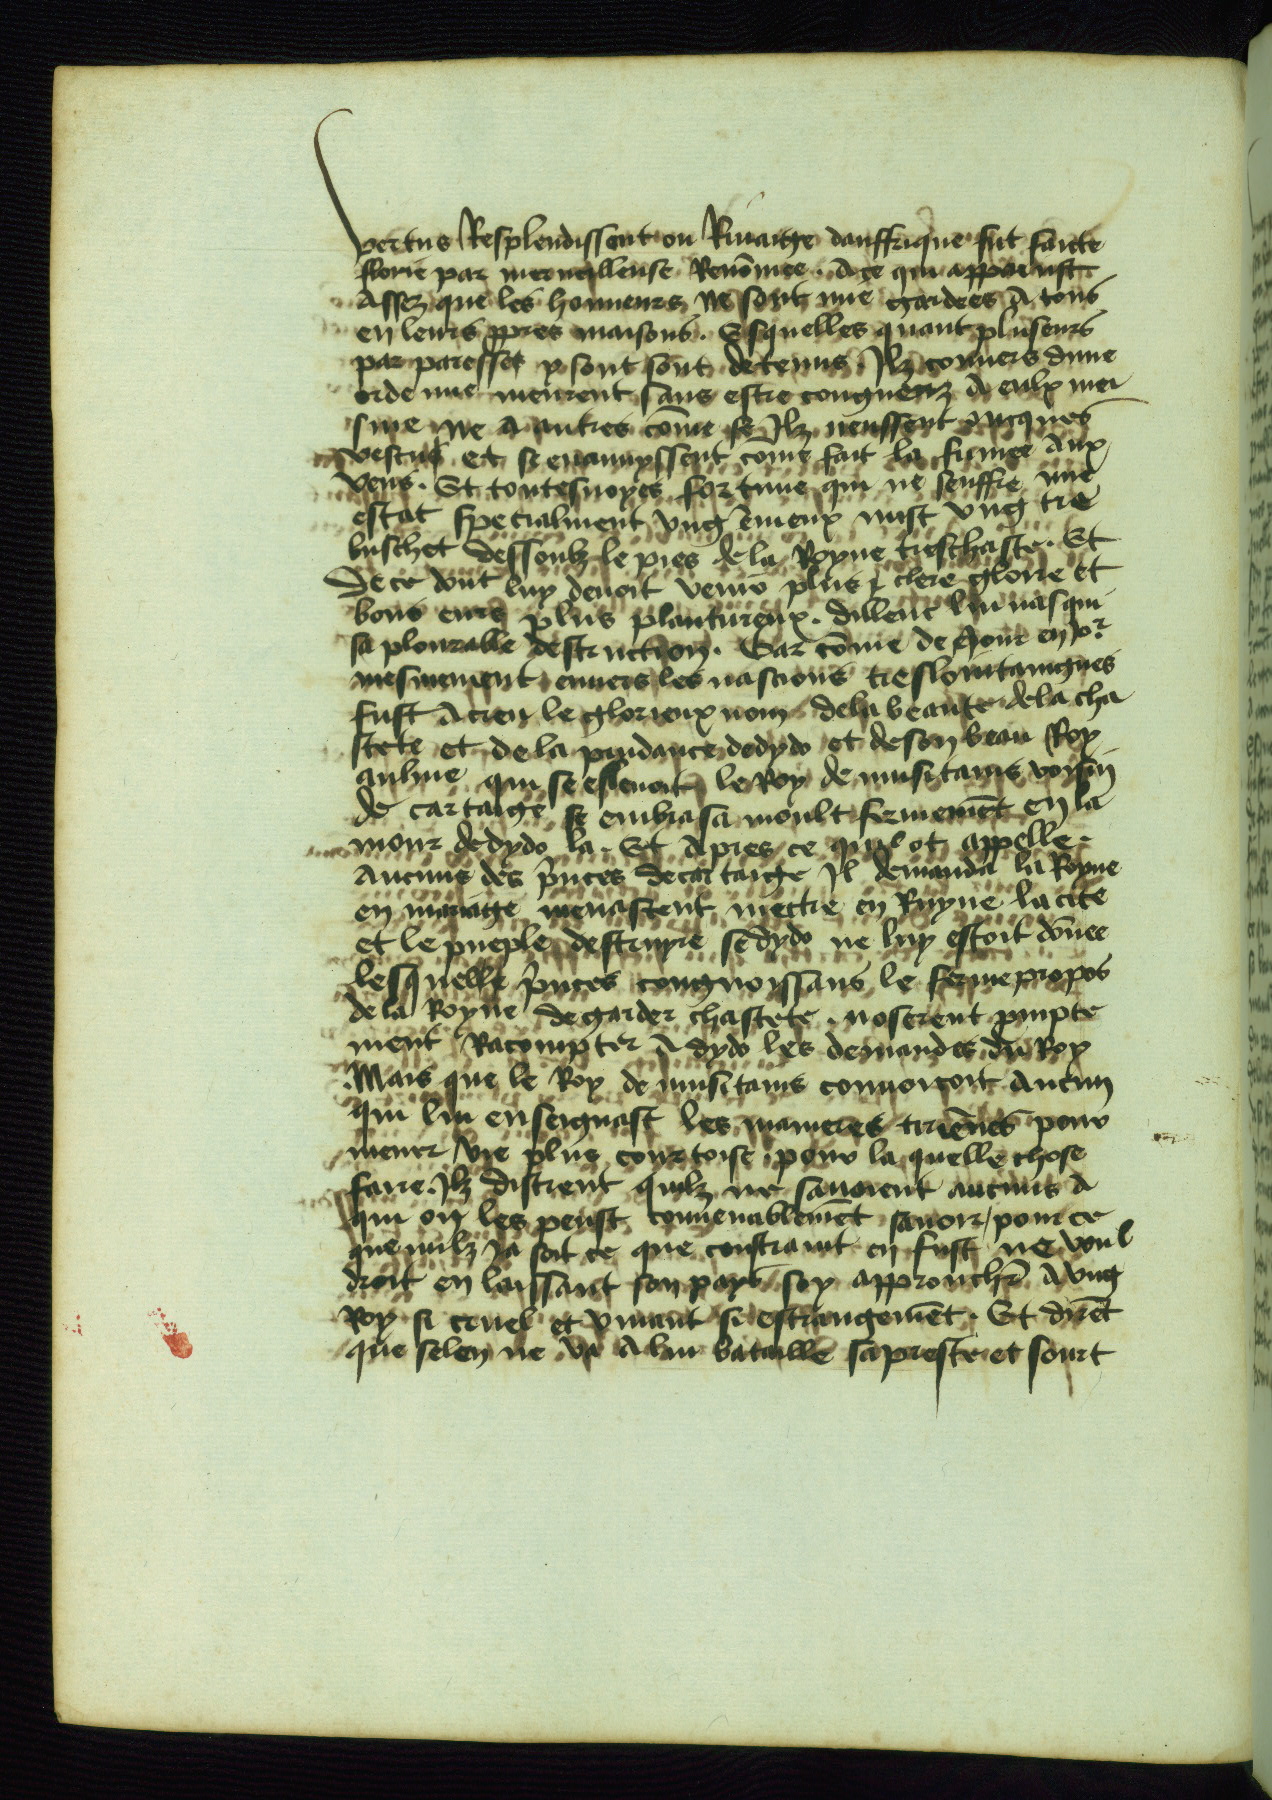 vertus Resplendissent ou Rivaitge dauffrique fut faicte
florie par merveilleuse Renōmee . A ce qui apparust
Assez que les honneurs ne sont mie gardees A tous
en leurs ppres maisons . Esquelles quant pluseurs
par paresse y sont sont detenus . Ilz couvers dune
orde nue meurent sans estre congneuz A eulx mes
sme ne a autres cōme se Ilz neussent oncques
vescus et se envanuyssent cōme fait la fumee Aux
vens . Et toutesvoyes fortune qui ne seuffre mie
estat specialment ung ēmeux mist ung tre
buschet dessoubz le pies de la Royne treschaste . Et
De ce dont luy devoit venir plus clere glorie et
bons eurs plus plantureux . dillenc lui nasqui
sa plourable destruction . Car cōme de Jour en Jor
mesmement envers les nascions treslointaingnes
fust Acreu le glorieux nom de la beaute de la cha
stete et de la prudance dedydo et de son beau Roy
aulme qui se eslevoit le Roy de musitains voysin
de cartaige se embrasa moult fermemēt en la
mour dedydo la . Et Apres ce quil ot appelle
Aucuns des p̄nces de cartaige Il demanda la Royne
en mariage menassent mectre en Ruyne la cite
et le pueple destruyre se dydo ne luy estoit dōnee
lesquelle p̄nces congnoissans le ferme propos
de la Royne de garder chastete . noserent prompte
ment Racompter A dydo les demandes du Roy
. Mais que le Roy de musitains convoitoit Aucun
qui lui enseignast les manieres tiriēnes pour
mener vie plus courtoise . pour la quelle chose
faire . Ilz distrent quilz ne savoient aucuns A
qui on les peust convenablemēt savoir / pour ce
que nulz Ja soit ce que constraint en fust ne voul
droit en laissant son pays soy approucher A ung
Roy si cruel et vivant si estrangemēt . Et dirēt
que selen ne va A lui bataille sapreste et sourt